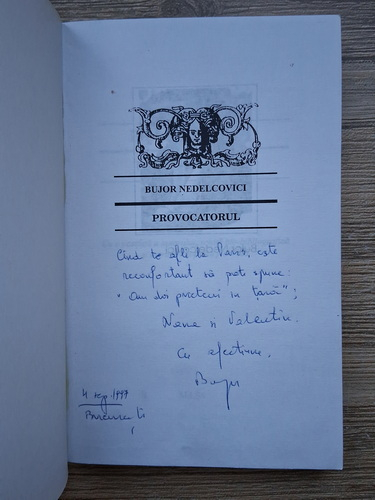 BUJOR NEDELCOVICI
PROVOCATORUL
Cînd te afli la Paris, este
reconfortant să poți spune:
"Am doi prieteni în țară";
Nana și Valentin.
Cu afecțiune,
Bujor
4 sep. 1997
București